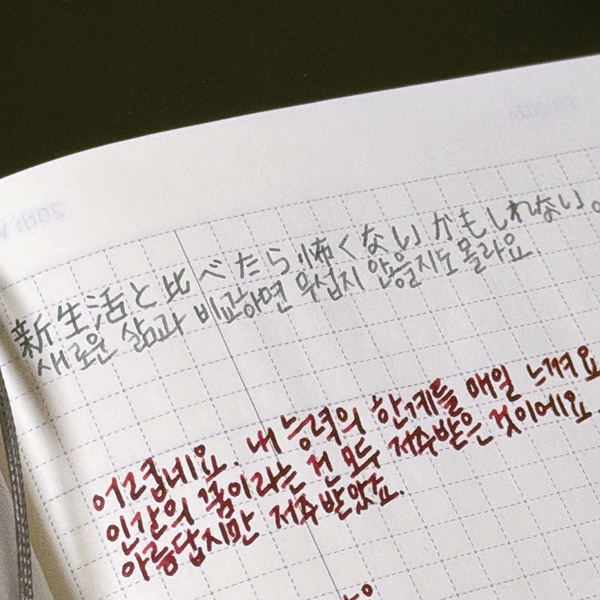 新生活と比べたら怖くないかもしれない。
새로운 삶과 비교하면 무섭지 않을지도 몰라요
어렵네요. 내 능력의 한계를 매일 느껴요
인간의 꿈이라는 건 모두 저주받은 것이에요.
아름답지만 저주받았죠.